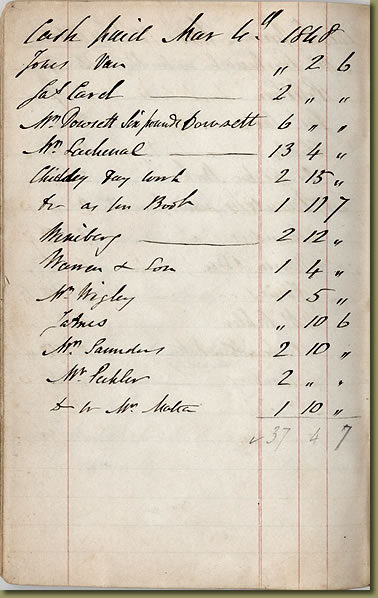 Cash paid Mar 4th 1848
Jones Van " 2 6
Jas Card 2 " "
Mr Dowsett Six pounds Dowsett 6 " "
Mr Lachenal 13 4 "
Chidley Day work 2 15 "
do as per Book 1 11 7
Weisberg 2 12 "
Warren & Son 1 4 "
Mr Wigley 1 5 "
James " 10 6
Mr Saunders 2 10 "
Mr 2 " "
Mr 1 10 "
37 4 7